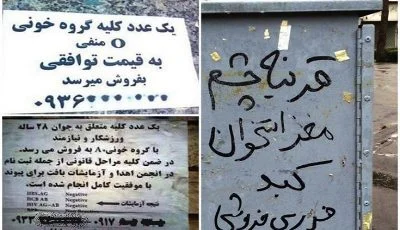 یک عدد کلیه گروه خونی
O منفی
به قیمت توافقی
بفروش میرسد
۰۹۳۶
یک عدد کلیه متعلق به جوان ۲۸ ساله
ورزشکار و نیازمند
با گروه خونی، ۸ به فروش می رسد.
در ضمن کلیه مراحل قانونی از جمله ثبت نام
در انجمن اهدا و آزمایشات بافت برای پیوند
با موفقیت کامل انجام شده است.
HBS.AG Negative
HCB AB Negative
HIV AG-AB Negative
نتیجه آزمایشات
۰۹۱۷
قرنیه چشم
مغز استخوان
کبد
فوری فروشی